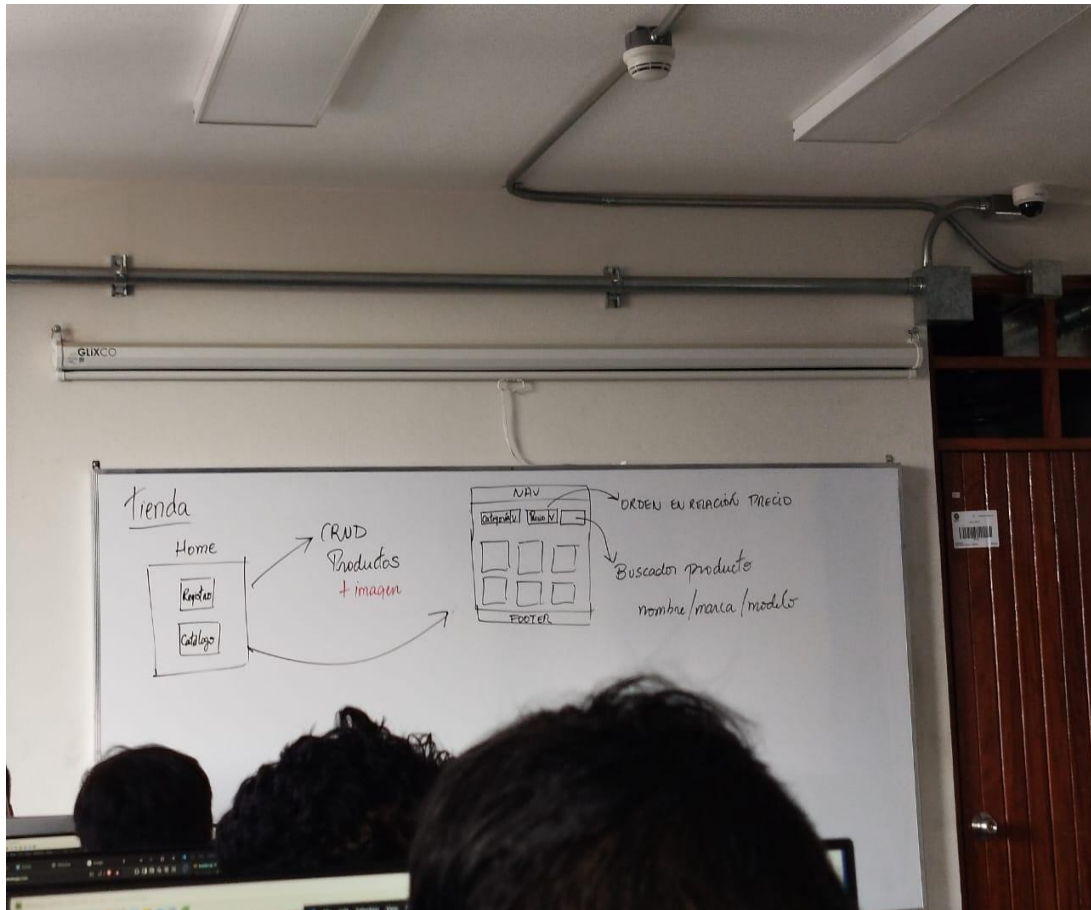 GLIXCO
Tienda
Home
Registro
Catálogo
CRUD
Productos
+ imagen
NAV
Categoría V
Precio V
FOOTER
ORDEN EN RELACIÓN PRECIO
Buscador producto
nombre/marca/modelo